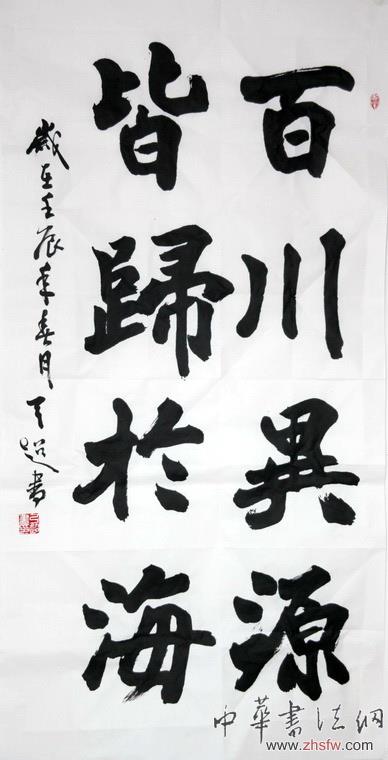 百川異源
皆歸於海
歲在壬辰年春月
書
中華書法網
www.zhsfw.com